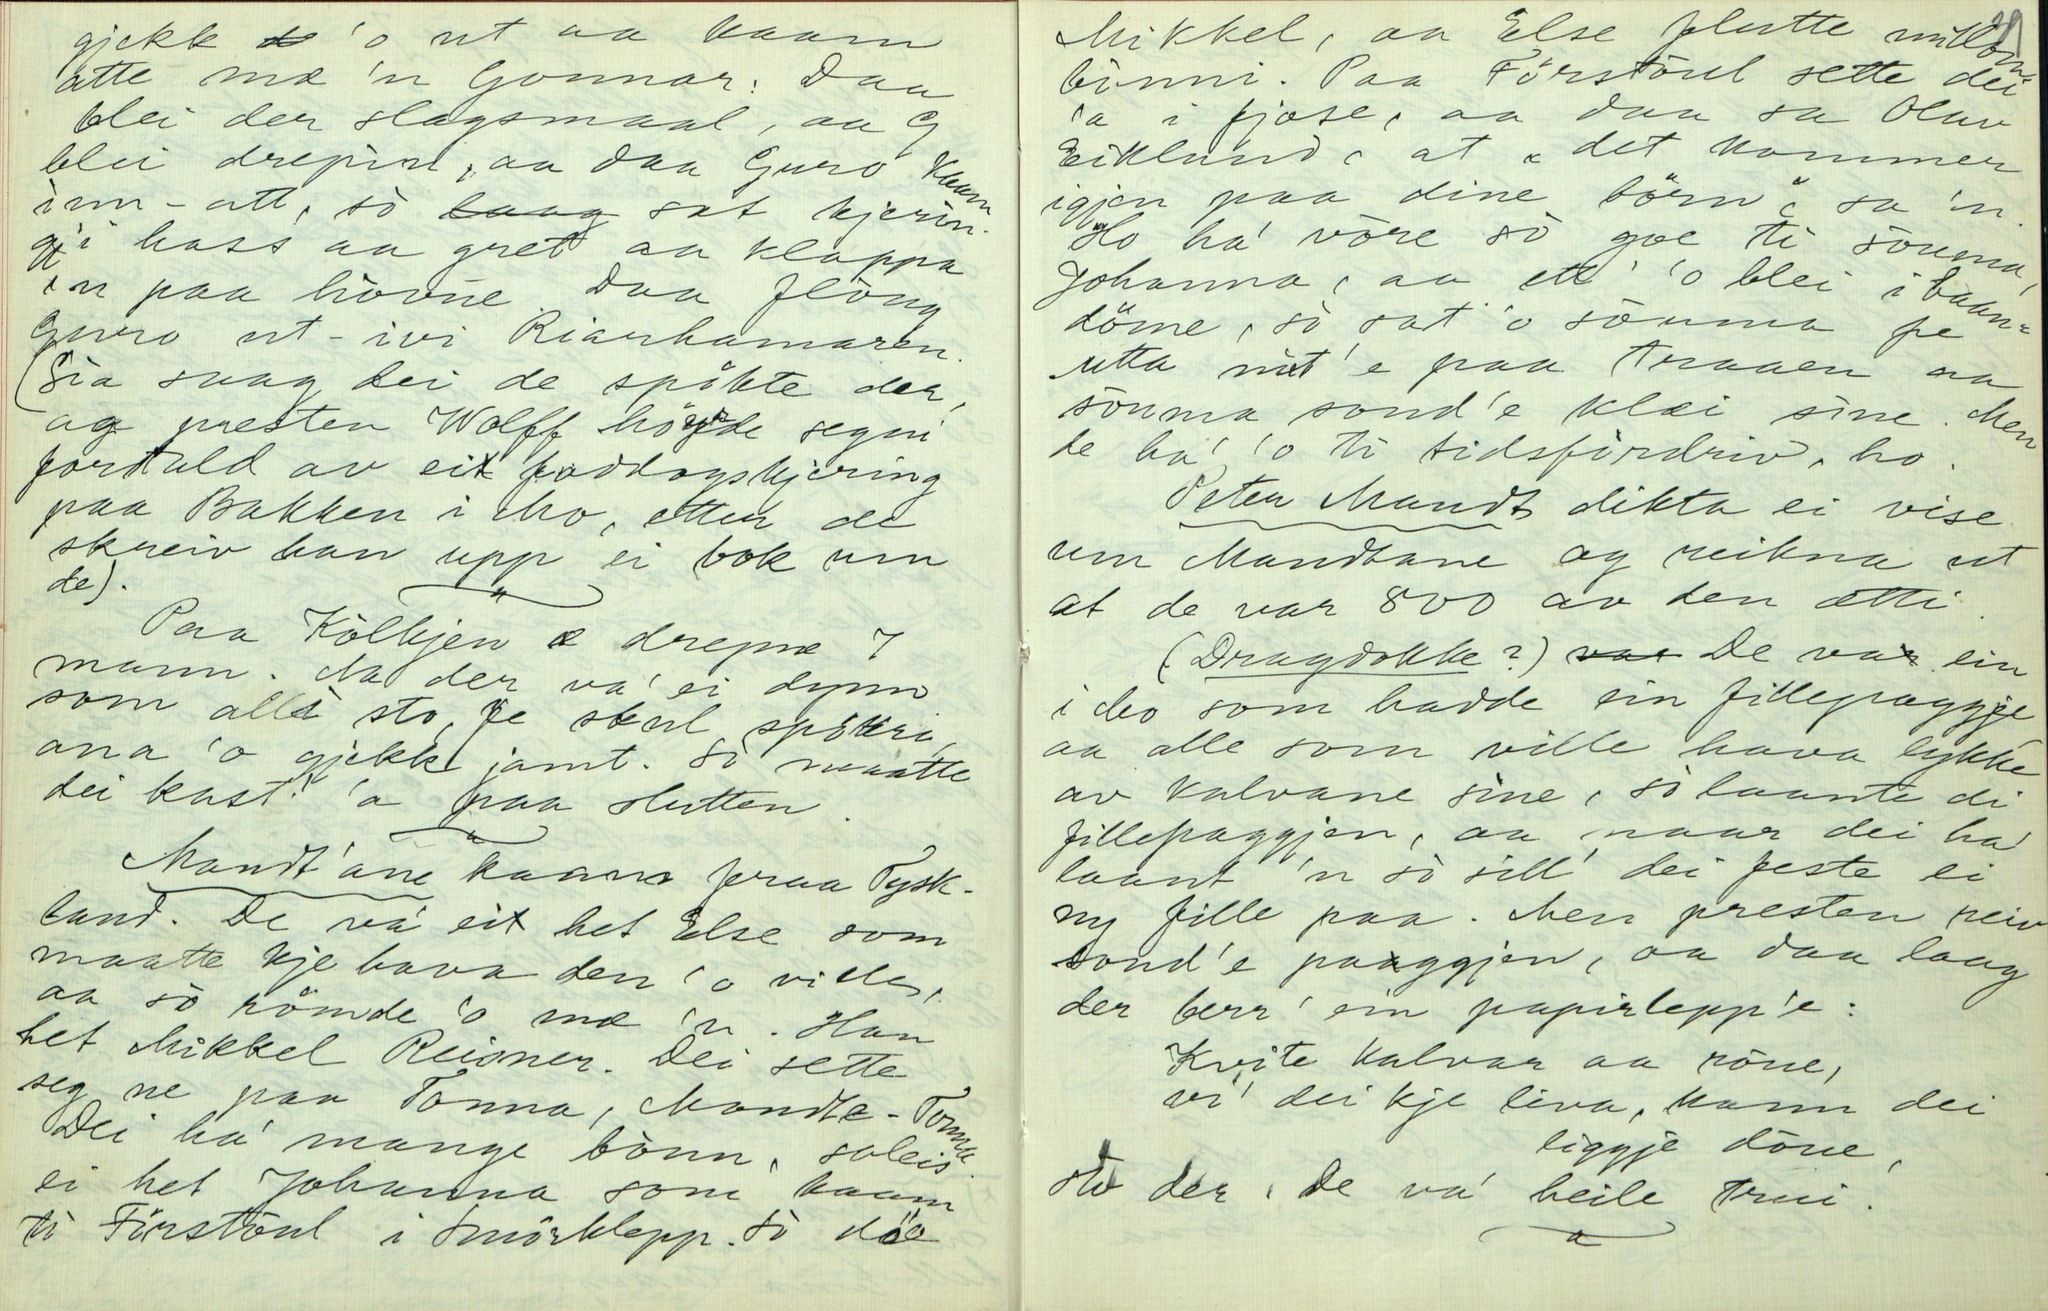 gjekk de 'o ut aa kaam
atte mæ 'n Gonnar. Daa
blei der slagsmaal, aa G
blei drepin, aa daa Guro kaam
inn-att, so laag sat kjerin-
gji hass aa gret aa klappa
'n paa hovue. Daa flaug
Guro ut-ivi Riarhamaren.
(Sia saag dei de spökte der,
og presten Wolff höyrde segni
fortald av eit foddogskjering
paa Bakken i Mo, etter de
skreiv han upp ei bok um
de).
Paa Kölkjen æ drepne 7
mann. Aa der va' ei dynn
som alli sto, fe skul spökri,
ana 'o gjekk jamt. So maatte
dei kast' 'a paa slutten.
Mandt'ane kaam fraa Tysk-
land. De va' eit het Else som
maatte kje hava den 'o ville,
aa so römde 'o mæ 'n. Han
het Mikkel Reisner. Dei sette
seg ne paa Tonna, Mandt-Tonna.
Dei ha' mange bonn, soleis
ei het Johanna som kaam
ti Förstöul i Smörklepp. So döe
29
Mikkel, aa Else flutte millom
binni. Paa Förstöul sette dei
'a i fjose, aa daa sa Olav
Eiklund, at "det kommer
igjen paa dine börn", sa 'n.
Ho ha' vore so goe ti souma,
Johanna, aa ett' 'o blei i baan-
döme, so sat 'o souma fe
utta nit'e paa traaen aa
souma sond'e klæi sine. Men
de ha' 'o ti tidsfördriv, ho.
Peter Mandt dikta ei vise
um Mandtane og reikna ut
at de var 800 av den ætti.
(Dragdokke?) var De var ein
i Mo som hadde ein fillepaggje
aa alle som ville hava lykke
av kalvane sine, so laante di
fillepaggjen, aa naar dei ha'
laant 'n so sill' dei feste ei
ny fille paa. Men presten reiv
sond'e paggjen, aa daa laag
der berr' ein papirlepp'e:
Kvite kalvar aa röue,
vi' dei kje liva, kann dei
liggje döue,
sto der. De va' heile trui.